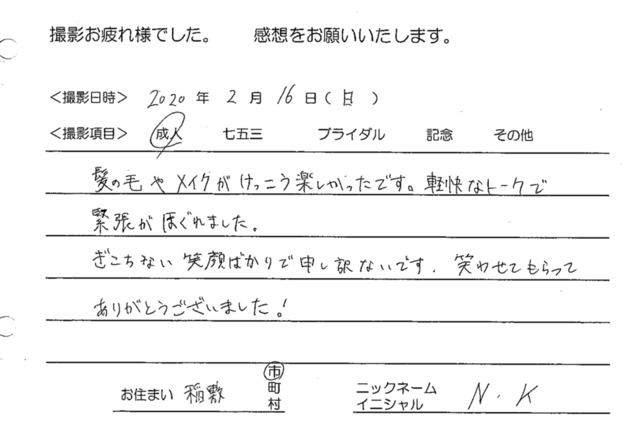 撮影お疲れ様でした。 感想をお願いいたします。
<撮影日時> 2020 年 2 月 16 日 ( 日 )
<撮影項目> 成人 七五三 ブライダル 記念 その他
髪の毛やメイクがけっこう楽しかったです。軽快なトークで
緊張がほぐれました。
ぎこちない笑顔ばかりで申し訳ないです. 笑わせてもらって
ありがとうございました!
お住まい 稲敷 市 町 村 ニックネーム イニシャル N.K